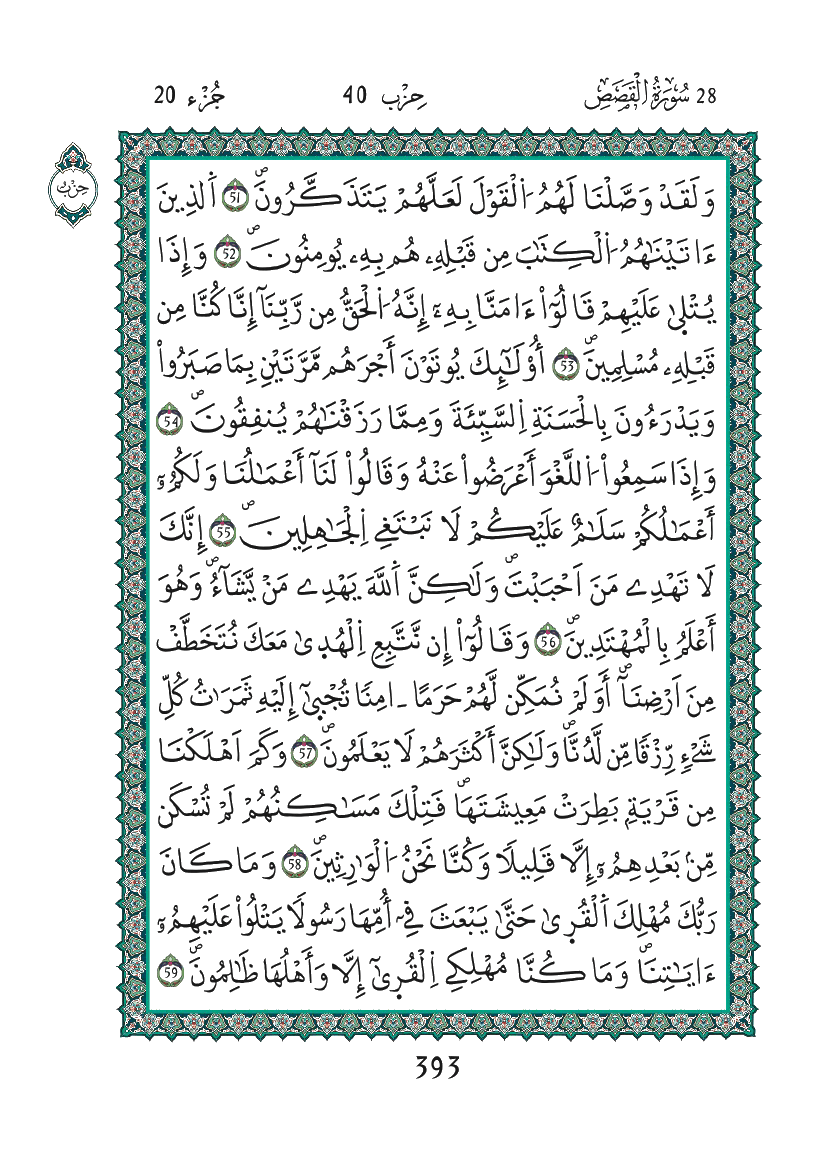 28 سُورَةُ الْقَصَصِ حِزْب 40 جُزْء 20
حِزْب
وَلَقَدْ وَصَّلْنَا لَهُمُ اُ۬لْقَوْلَ لَعَلَّهُمْ يَتَذَكَّرُونَۖ 51 اَ۬لذِينَ
ءَاتَيْنَٰهُمُ اُ۬لْكِتَٰبَ مِن قَبْلِهِۦ هُم بِهِۦ يُومِنُونَۖ 52 وَإِذَا
يُتْلَىٰ عَلَيْهِمْ قَالُوٓاْ ءَامَنَّا بِهِۦٓ إِنَّهُ اُ۬لْحَقُّ مِن رَّبِّنَآ إِنَّا كُنَّا مِن
قَبْلِهِۦ مُسْلِمِينَۖ 53 أُوْلَٰٓئِكَ يُوتَوْنَ أَجْرَهُم مَّرَّتَيْنِ بِمَا صَبَرُواْ
وَيَدْرَءُونَ بِالْحَسَنَةِ اِ۬لسَّيِّئَةَ وَمِمَّا رَزَقْنَٰهُمْ يُنفِقُونَۖ 54
وَإِذَا سَمِعُواْ اُ۬للَّغْوَ أَعْرَضُواْ عَنْهُ وَقَالُواْ لَنَآ أَعْمَٰلُنَا وَلَكُمُۥٓ
أَعْمَٰلُكُمْ سَلَٰمٌ عَلَيْكُمْ لَا نَبْتَغِے اِ۬لْجَٰهِلِينَۖ 55 إِنَّكَ
لَا تَهْدِے مَنَ اَحْبَبْتَۖ وَلَٰكِنَّ اَ۬للَّهَ يَهْدِے مَنْ يَّشَآءُۖ وَهُوَ
أَعْلَمُ بِالْمُهْتَدِينَۖ 56 وَقَالُوٓاْ إِن نَّتَّبِعِ اِ۬لْهُد۪ىٰ مَعَكَ نُتَخَطَّفْ
مِنَ اَرْضِنَآۖ أَوَلَمْ نُمَكِّن لَّهُمْ حَرَماً ـ اٰمِنٗا تُجْبَىٰٓ إِلَيْهِ ثَمَرَٰتُ كُلِّ
شَےْءٖ رِّزْقٗا مِّن لَّدُنَّاۖ وَلَٰكِنَّ أَكْثَرَهُمْ لَا يَعْلَمُونَۖ 57 وَكَمَ اَهْلَكْنَا
مِن قَرْيَةِۢ بَطِرَتْ مَعِيشَتَهَاۖ فَتِلْكَ مَسَٰكِنُهُمْ لَمْ تُسْكَن
مِّنۢ بَعْدِهِمُۥٓ إِلَّا قَلِيلٗا وَكُنَّا نَحْنُ اُ۬لْوَٰرِثِينَۖ 58 وَمَا كَانَ
رَبُّكَ مُهْلِكَ اَ۬لْقُر۪ىٰ حَتَّىٰ يَبْعَثَ فِےٓ أُمِّهَا رَسُولٗا يَتْلُواْ عَلَيْهِمُۥٓ
ءَايَٰتِنَاۖ وَمَا كُنَّا مُهْلِكِے اِ۬لْقُر۪ىٰٓ إِلَّا وَأَهْلُهَا ظَٰلِمُونَۖ 59
393